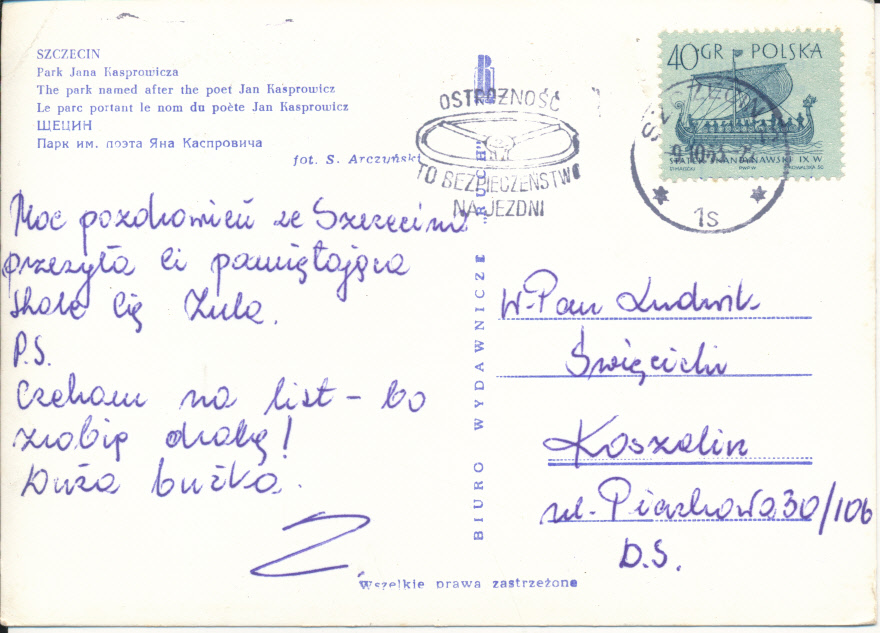 SZCZECIN
Park Jana Kasprowicza
The park named after the poet Jan Kasprowicz
Le parc portant le nom du poète Jan Kasprowicz
ЩЕЦИН
Парк им. поэта Яна Каспровича
fot. S. Arczyński
OSTROŻNOŚĆ
TO BEZPIECZEŃSTWO
NA JEZDNI
40 GR POLSKA
STATEK SKANDYNAWSKI IX W
SZCZECIN
1s
Moc pozdrowień ze Szczecina
przesyła Ci pamiętająca
stale Cię Zula.
P.S.
Czekam na list - bo
zrobię drakę!
Duża buźka.
Z.
BIURO WYDAWNICZE "RUCH"
W-Pan Ludwik
Święcicki
Koszalin
ul. Piaskowa 30/106
D.S.
Wszelkie prawa zastrzeżone